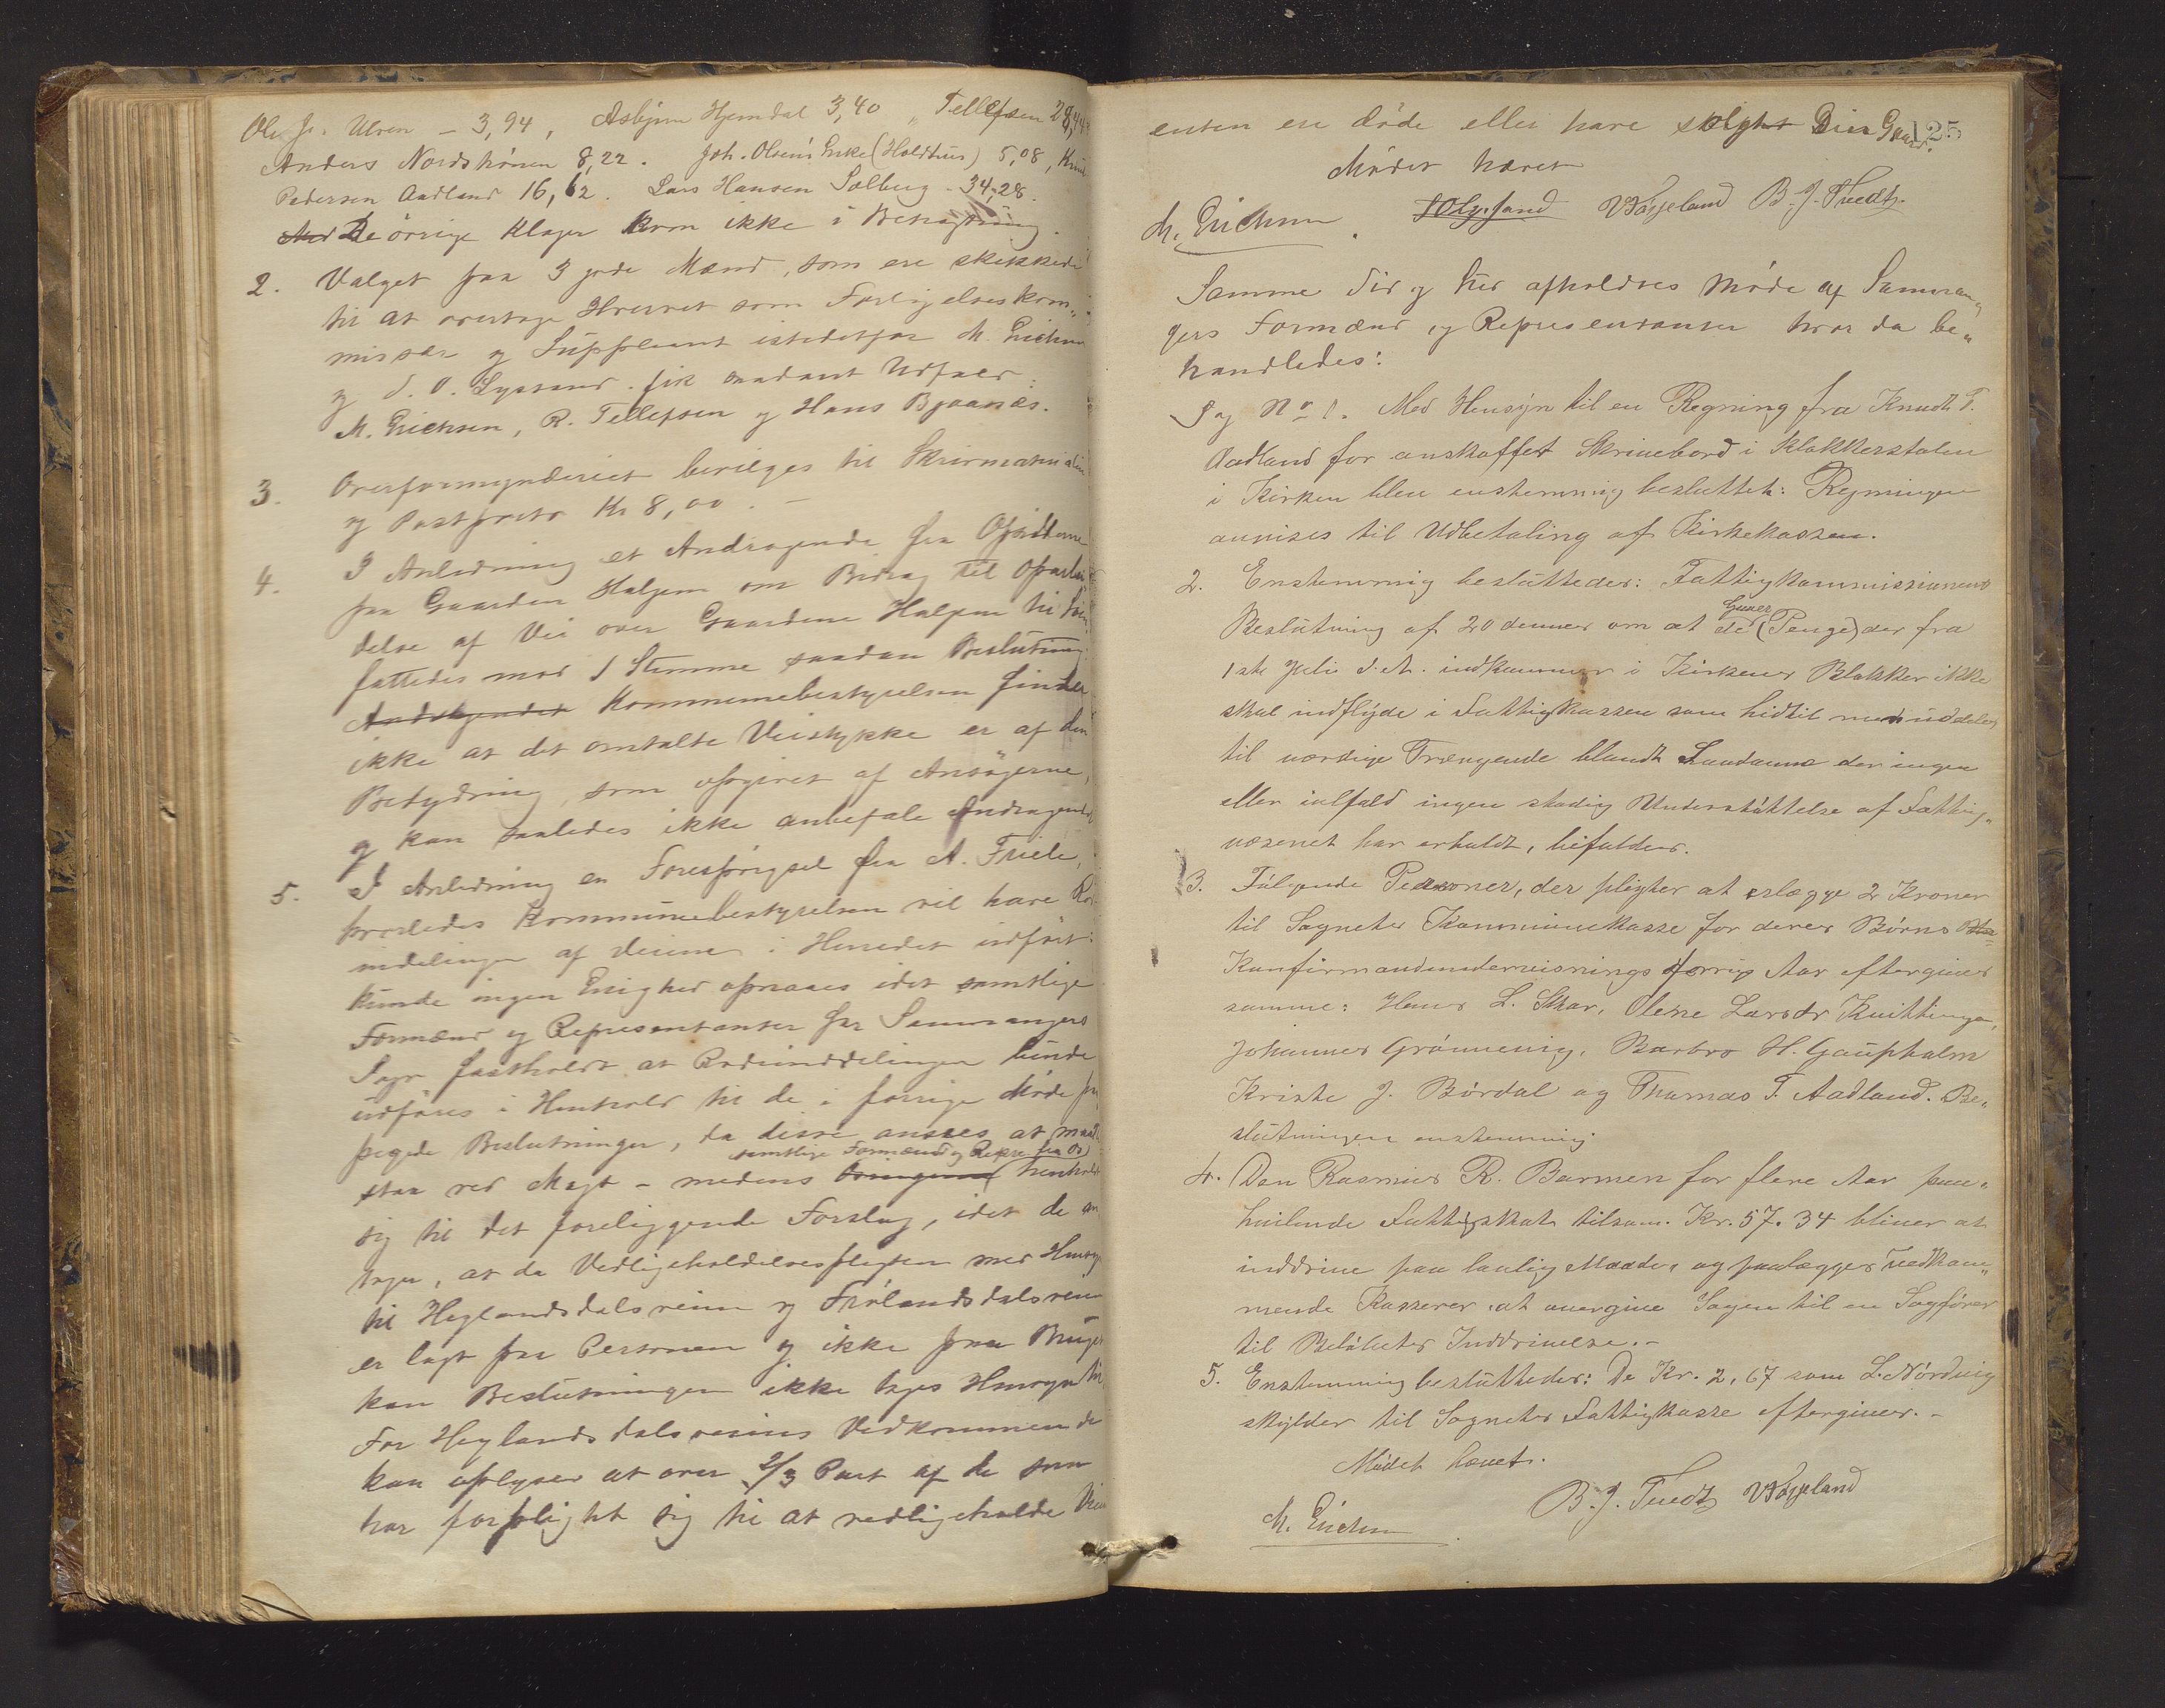 Ole J. Ulven – 3,94, Asbjørn Hjemdal 3,40 „ Tellefsen 28,44
Anders Nordströnen 8,22. Joh. Olsens Enke (Holdhus) 5,08, Knud
Pedersen Aadland 16,62. Lars Hansen Solberg – 34,28.
De övrige Klager kom ikke i Betragtning.
2. Valget paa 3 gode Mænd, som ere skikkede
til at overtage Hvervet som Forligelseskom„
missær og Suppleant istedetfor M. Erichsen
og O. Lyssand fik saadant Udfald:
M. Erichsen, R. Tellefsen og Hans Bjaanæs.
3. Overformynderiet bevilges til Skrivmaterialier
og Postporto Kr 8,00. –
4. I Anledning et Andragende fra Opsidderne
paa Gaarden Halgjem om Bidrag til Oparbei
delse af Vei over Gaardene Halgjem til
fattedes mod 1 Stemme saadan Beslutning:
Andragendet Kommunebestyrelsen finder
ikke at det omtalte Veistykke er af den
Betydning, som opgivet af Ansögerne,
og kan saaledes ikke anbefale Andragendet
5. I Anledning en Forespörgsel fra A. Friele,
hvorledes Kommunebestyrelsen vil have Ro
inddelingen af Veiene i Herredet udfört:
kunde ingen Enighed opnaaes idet samtlige
Formænd og Representanter for Samnangers
Sogn fastholdt at Rodeinddelingen burde
udföres i Henhold til de i forrige Möde
pegede Beslutninger, da disse ansees at maatte
samtlige Formænd og Repr. fra Os
staa ved Magt – medens henholdt
sig til det foreliggende Forslag, idet de an
tager, at da Vedligeholdelsespligten med Hensyn
til Heglandsdalsveien og Frölandsdalsveien
er lagt paa Personen og ikke paa Bruget
kan Beslutningen ikke tages Hensyn til.
For Heglandsdalsveiens Vedkommende
kan oplyses at over 2/3 Part af de som
har forpligtet sig til at vedligeholde Veien
enten ere döde eller have solgt Gaard. 125
Mödet hævet
M. Erichsen. Vaageland B. J. Tvedt.
Samme Tid og Sted afholdtes Möde af Samnan„
gers Formænd og Representanter hvor da be„
handledes:
Sag No 1. Med Hensyn til en Regning fra Knudt P.
Aadland for anskaffet Skrivebord i Klokkerstolen
i Kirken blev enstemmig besluttet: Regningen
anvises til Udbetaling af Kirkekassen.
2. Enstemmig besluttedes: Fattigkommissionens
Gaver
Beslutning af 20 dennes om at de (Penge) der fra
1ste Juli d. A. indkommer i Kirkens Blokker ikke
skal indflyde i Fattigkassen som hidtil men uddeles
til værdige Trængende blandt Saadanne der ingen
eller ialfald ingen stadig Understöttelse af Fattig„
væsenet har erholdt, bifaldes.
3. Fölgende Personer, der pligter at erlægge 2 Kroner
til Sognets Kommunekasse for deres Börns
Konfirmandundervisnings forrige Aar eftergives
samme: Hans L. Skar, Olene Larsdr Kvittingen,
Johannes Grönnevig, Barbro H. Gaupholm
Kriste J. Bördal og Thomas T. Aadland. Be„
slutningen enstemmig.
4. Den Rasmus R. Barmen for flere Aar paa„
hvilende Fattigskat tilsam. Kr. 57.34 bliver at
inddrive paa lovlig Maade, og paalægges vedkom„
mende Kasserer at overgive Sagen til en Sagförer
til Belöbets Inddrivelse. –
5. Enstemmig besluttedes: De Kr. 2,67 som L. Nordvig
skylder til Sognets Fattigkasse eftergives. –
Mödet hævet.
M. Erichsen. B. J. Tvedt Vaageland